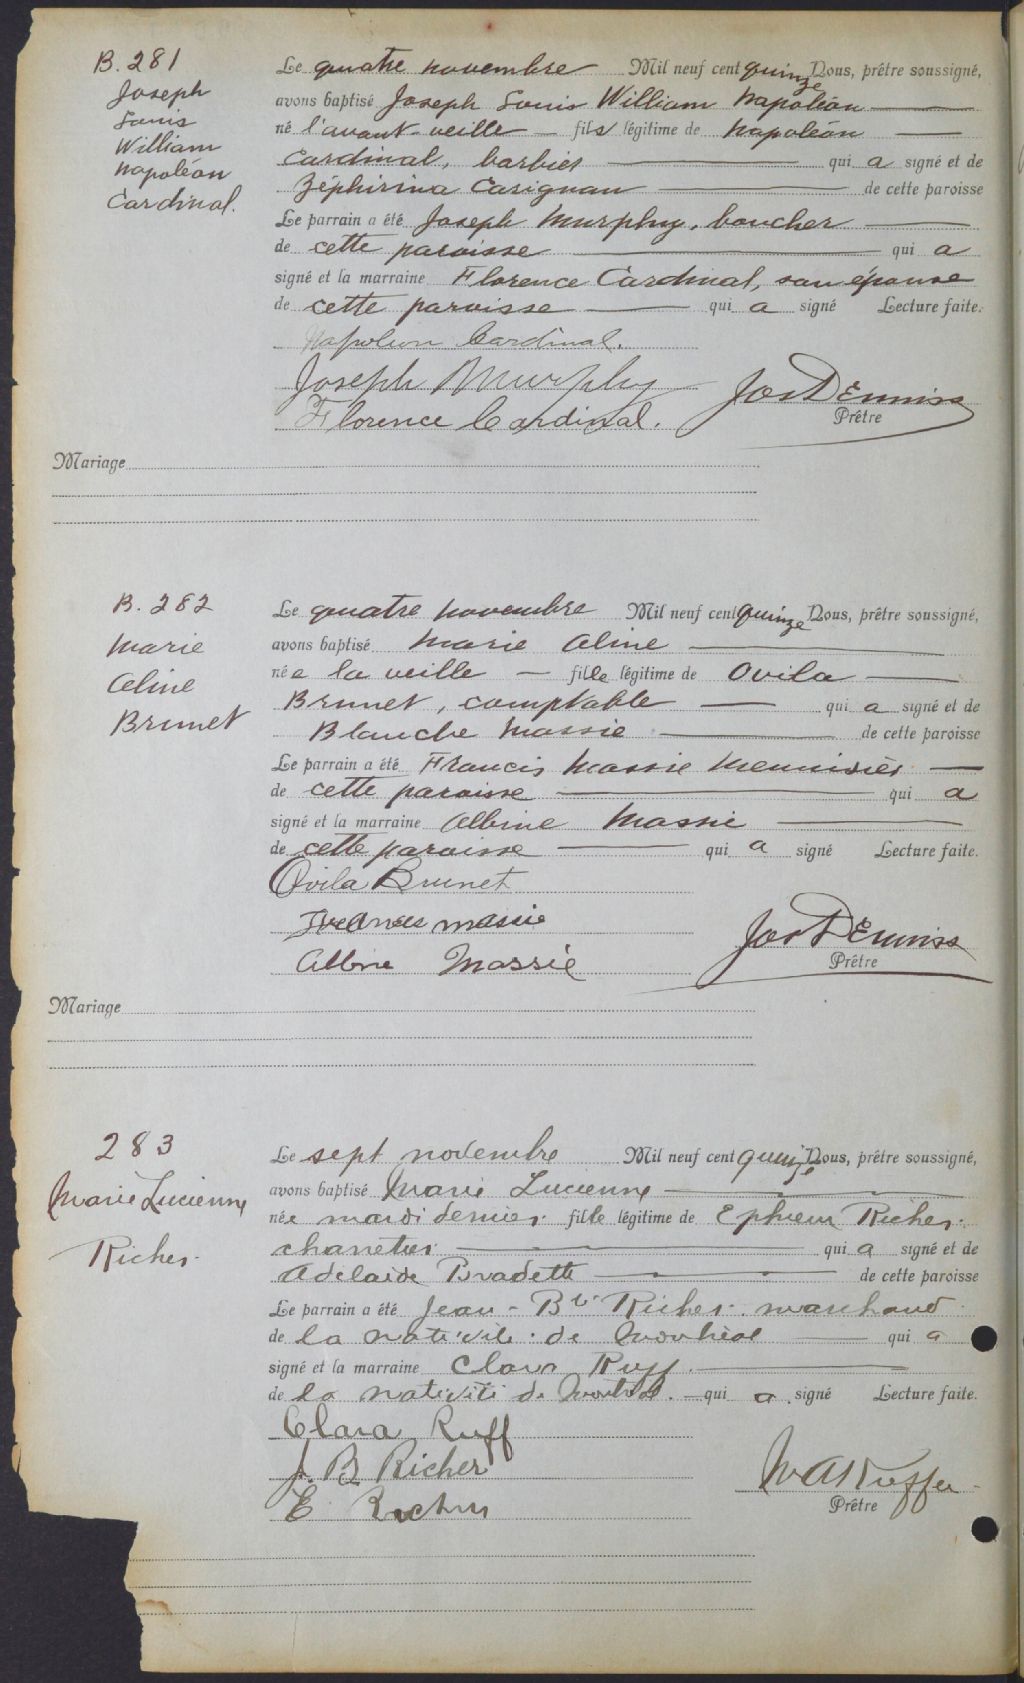 B. 281
Joseph
Louis
William
Napoléon
Cardinal.
Le quatre novembre Mil neuf cent quinze Nous, prêtre soussigné,
avons baptisé Joseph Louis William Napoléon
né l'avant-veille fils légitime de Napoléon
Cardinal, barbier qui a signé et de
Zéphirina Carignan de cette paroisse
Le parrain a été Joseph Murphy, boucher
de cette paroisse qui a
signé et la marraine Florence Cardinal, son épouse
de cette paroisse qui a signé Lecture faite.
Napoléon Cardinal.
Joseph Murphy
Florence Cardinal.
Prêtre
Mariage
B. 282
Marie
Aline
Brunet
Le quatre novembre Mil neuf cent quinze Nous, prêtre soussigné,
avons baptisé Marie Aline
née la veille fille légitime de Ovila
Brunet, comptable qui a signé et de
Blanche Massie de cette paroisse
Le parrain a été Francis Massie menuisier
de cette paroisse qui a
signé et la marraine Albine Massie
de cette paroisse qui a signé Lecture faite.
Ovila Brunet
Francis Massie
Albine Massie
Prêtre
Mariage
283
Marie Lucienne
Richer.
Le sept novembre Mil neuf cent quinze Nous, prêtre soussigné,
avons baptisé Marie Lucienne
née mardi dernier fille légitime de Ephrem Richer.
charretier qui a signé et de
Adélaide Bradette de cette paroisse
Le parrain a été Jean-Bte Richer. marchand
de la nativité de Montréal qui a
signé et la marraine Clara Ruff.
de la nativité de Montréal. qui a signé Lecture faite.
Clara Ruff
J. B. Richer
E. Richer
Prêtre